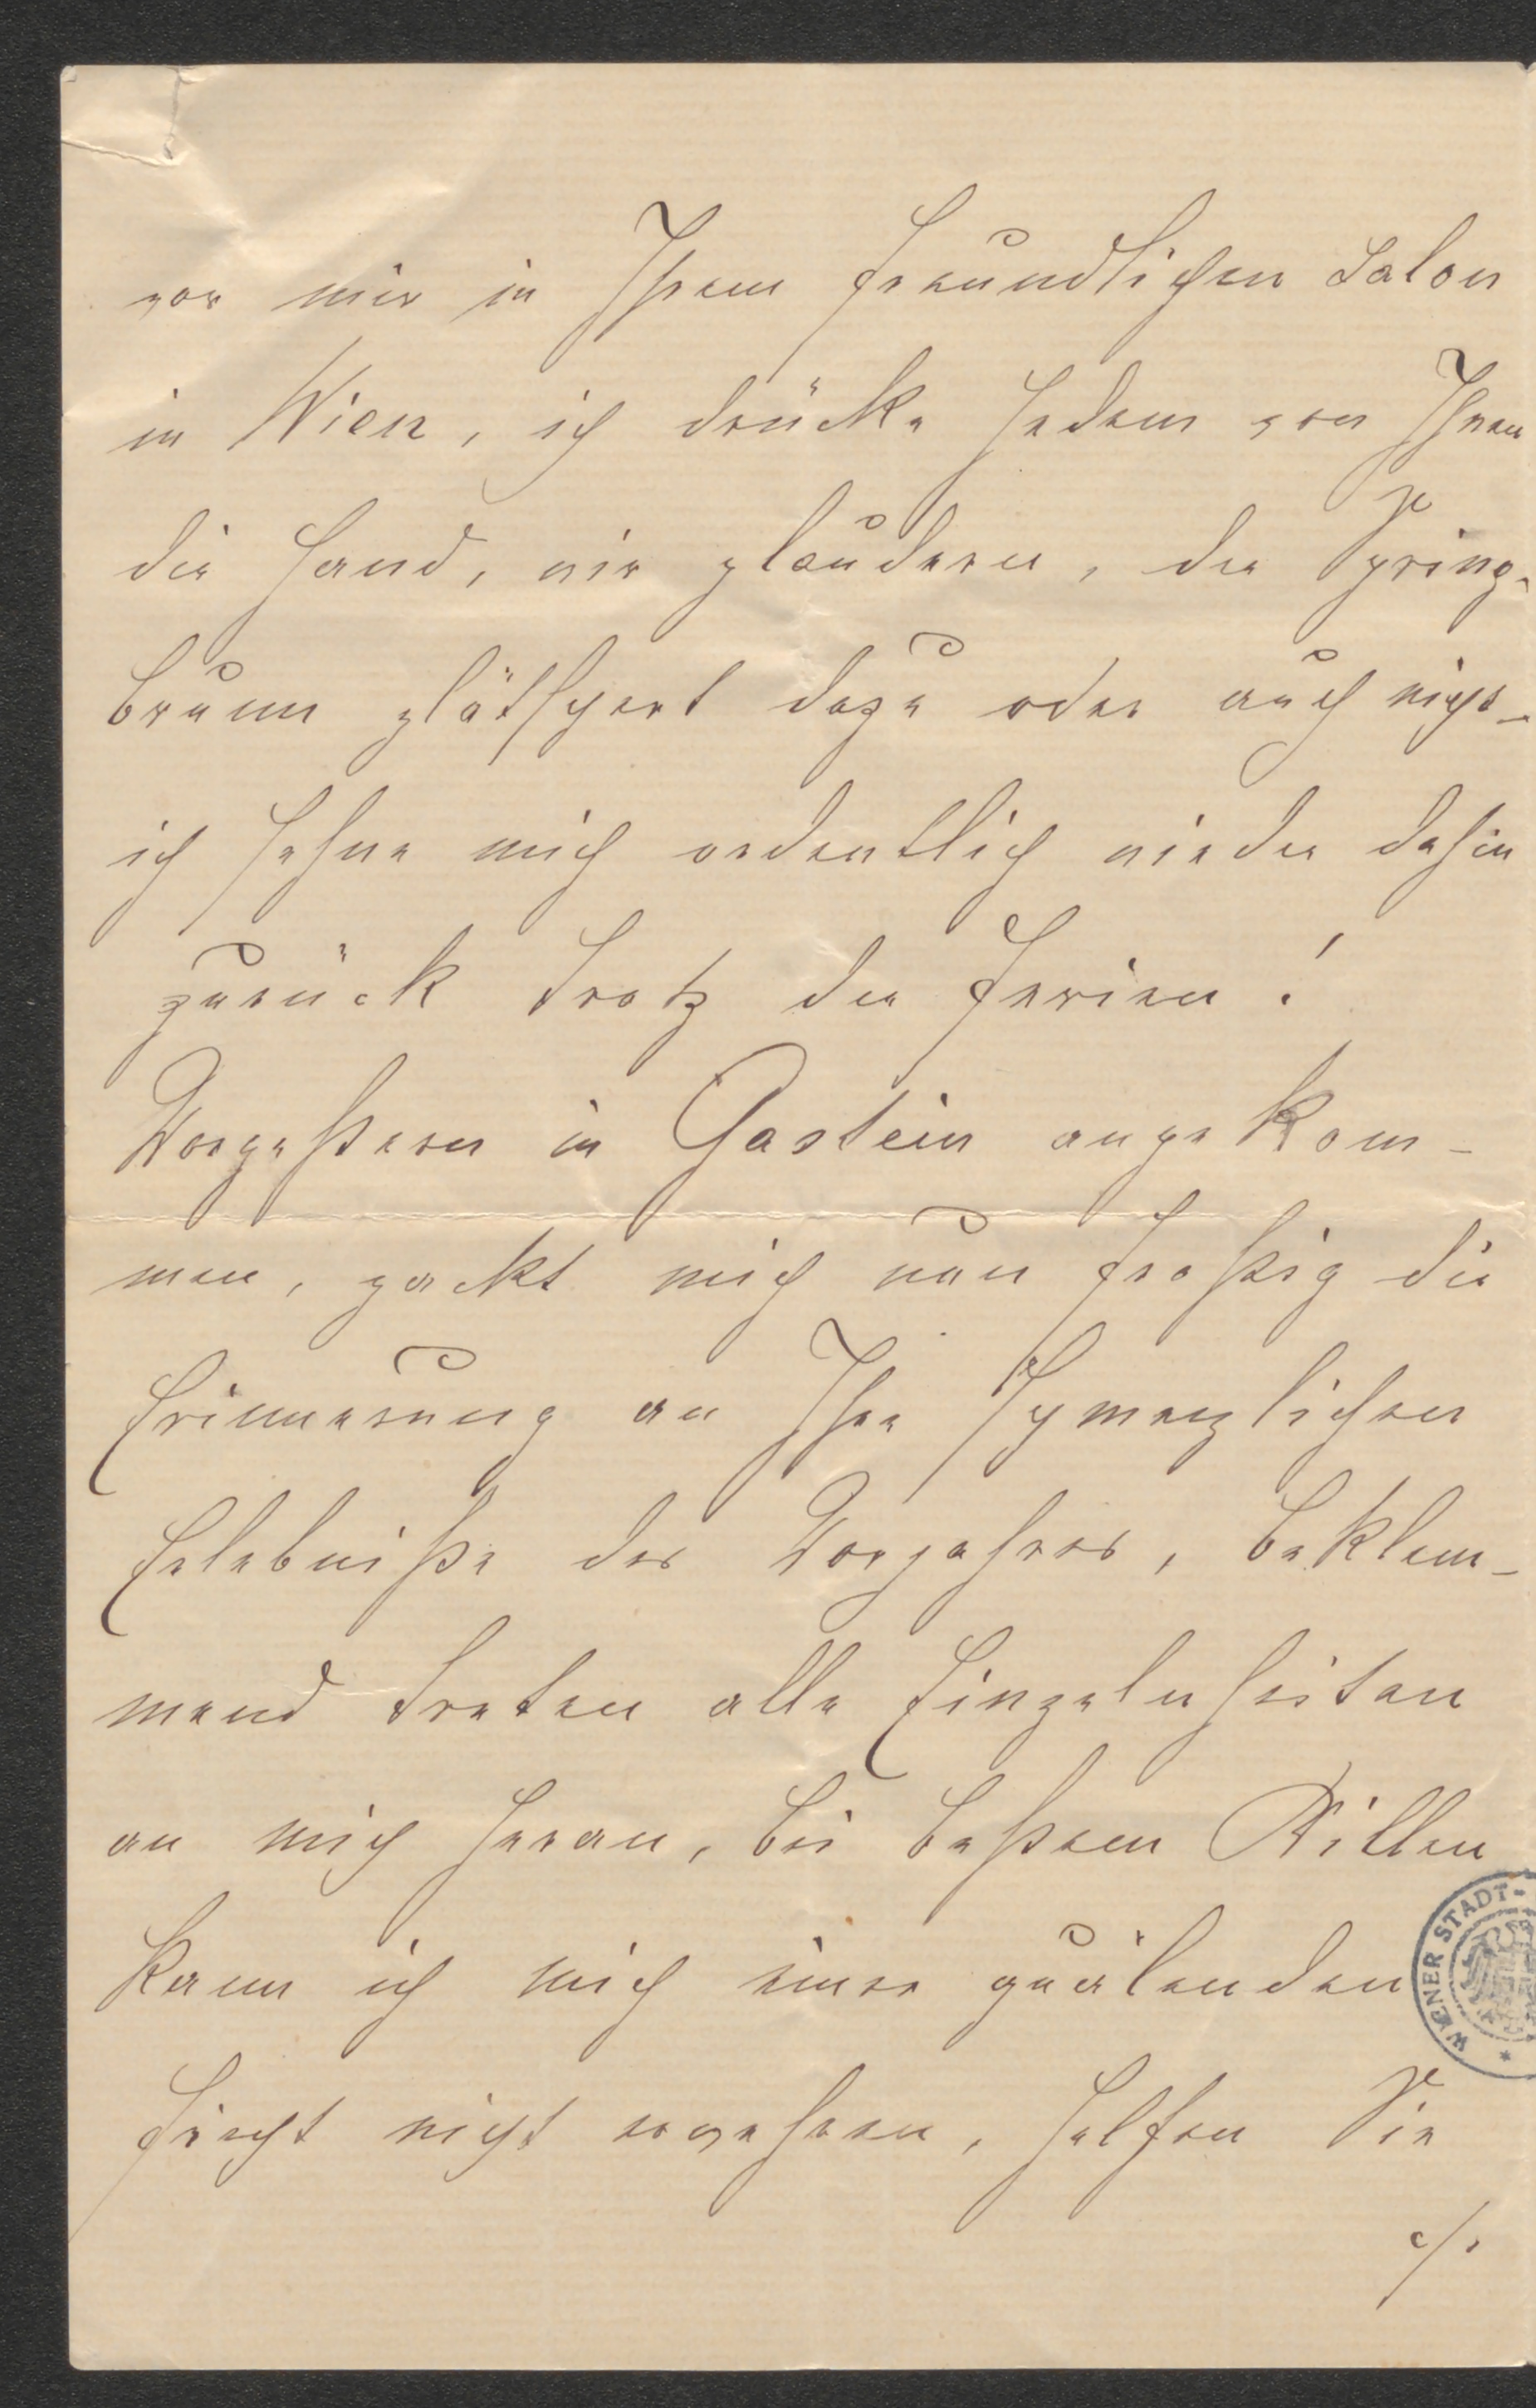 vor mir in Ihrem freundlichen Salon
in Wien, ich drücke Jedem von Ihnen
die Hand, wir plaudern, der Spring-
brunn plätschert dazu oder auch nicht –
ich sehne mich ordentlich wieder dahin
zurück trotz der Ferien!
Vorgestern in Gastein angekom-
men, packt mich nun frostig die
Erinnerung an Ihre schmerzlichen
Erlebniße des Vorjahres, beklem-
mend treten alle Einzelnheiten
an mich heran, bei bestem Willen
kann ich mich einer quälenden
Furcht nicht erwehren, helfen Sie
./.
WIENER STADT-